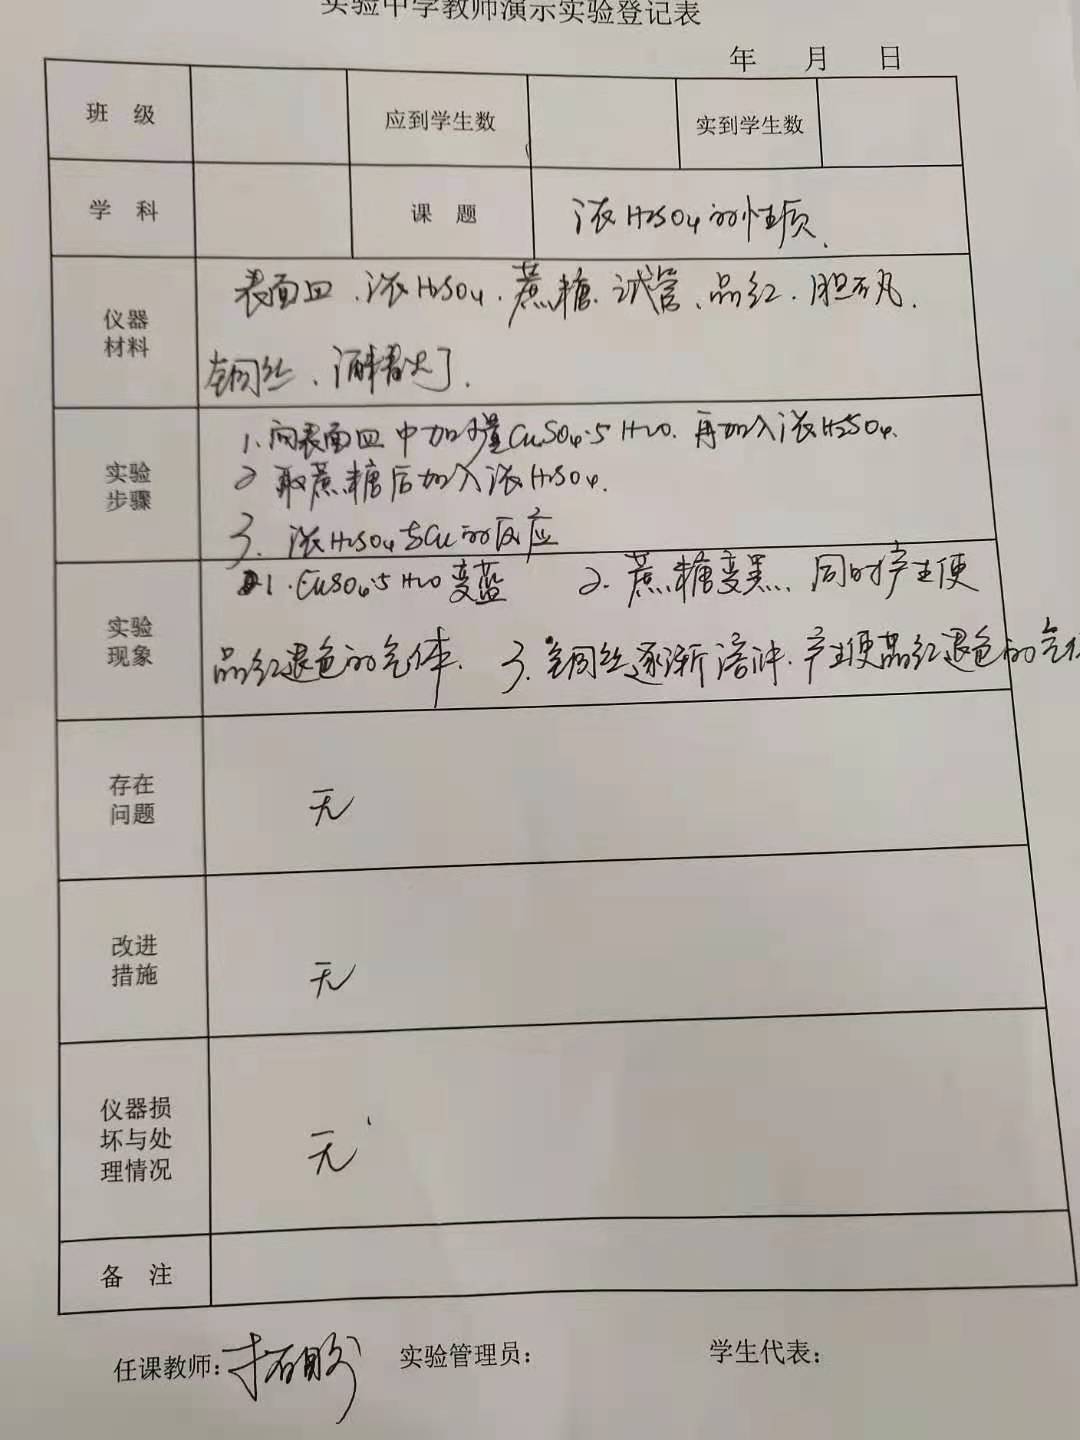 实验中学教师演示实验登记表
年 月 日
班 级 应到学生数 实到学生数
学 科 课 题 浓H2SO4的性质.
仪器材料 表面皿、浓H2SO4、蔗糖、试管、品红、胆矾、
铜丝、酒精灯.
实验步骤 1.向表面皿中加少量CuSO4·5H2O.再加入浓H2SO4.
2 取蔗糖后加入浓H2SO4.
3. 浓H2SO4与Cu的反应
实验现象 1.CuSO4·5H2O变蓝 2.蔗糖变黑、同时产生使
品红退色的气体. 3.铜丝逐渐溶解.产生使品红退色的气体
存在问题 无
改进措施 无
仪器损坏与处理情况 无
备 注
任课教师: 实验管理员: 学生代表: